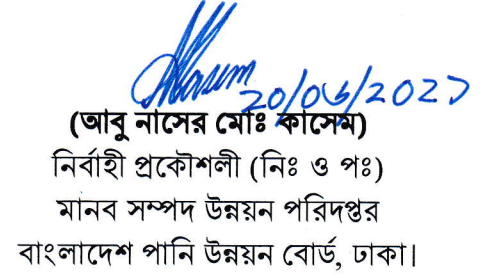 20/06/2023
(আবু নাসের মোঃ কাসেম)
নির্বাহী প্রকৌশলী (নিঃ ও পঃ)
মানব সম্পদ উন্নয়ন পরিদপ্তর
বাংলাদেশ পানি উন্নয়ন বোর্ড, ঢাকা।